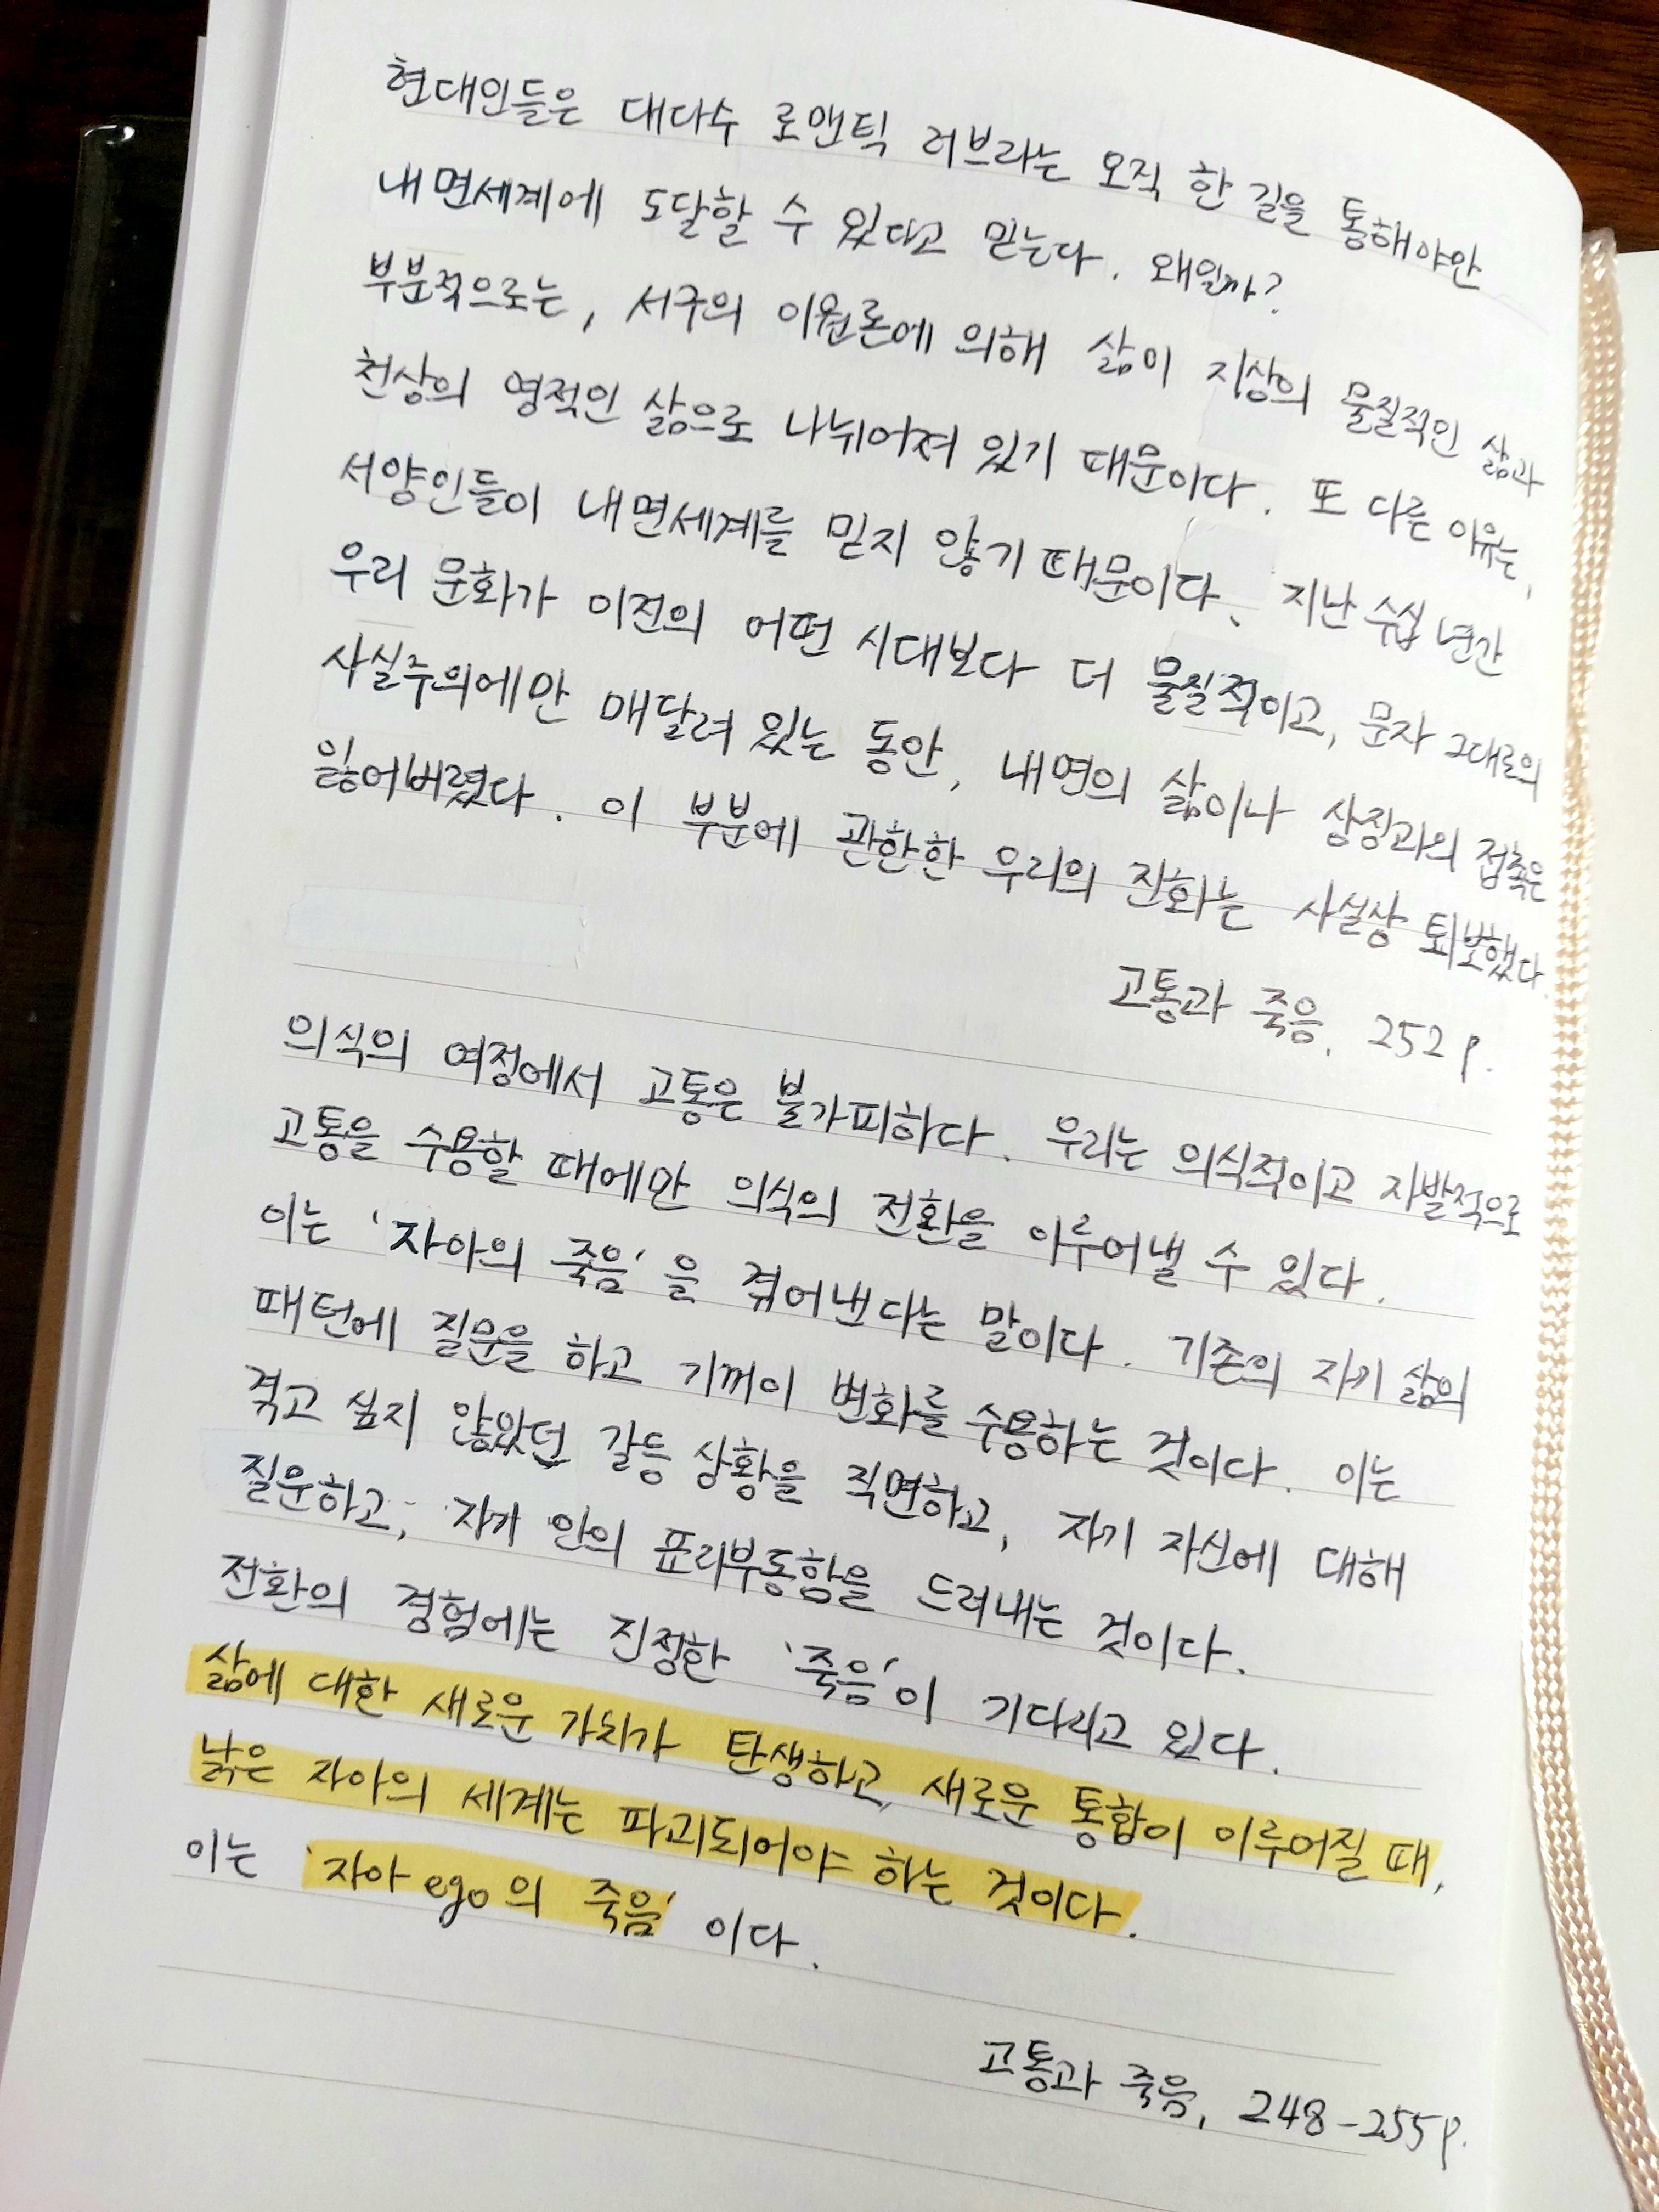 현대인들은 대다수 로맨틱 러브라는 오직 한 길을 통해야만
내면세계에 도달할 수 있다고 믿는다. 왜일까?
부분적으로는, 서구의 이원론에 의해 삶이 지상의 물질적인 삶과
천상의 영적인 삶으로 나뉘어져 있기 때문이다. 또 다른 이유는,
서양인들이 내면세계를 믿지 않기 때문이다. 지난 수십 년간
우리 문화가 이전의 어떤 시대보다 더 물질적이고, 문자 그대로의
사실주의에만 매달려 있는 동안, 내면의 삶이나 상징과의 접촉은
잃어버렸다. 이 부분에 관한한 우리의 진화는 사실상 퇴보했다.
고통과 죽음, 252p.
의식의 여정에서 고통은 불가피하다. 우리는 의식적이고 자발적으로
고통을 수용할 때에만 의식의 전환을 이루어낼 수 있다.
이는 '자아의 죽음'을 겪어낸다는 말이다. 기존의 자기 삶의
패턴에 질문을 하고 기꺼이 변화를 수용하는 것이다. 이는
겪고 싶지 않았던 갈등 상황을 직면하고, 자기 자신에 대해
질문하고, 자기 안의 표리부동함을 드러내는 것이다.
전환의 경험에는 진정한 '죽음'이 기다리고 있다.
삶에 대한 새로운 가치가 탄생하고, 새로운 통합이 이루어질 때,
낡은 자아의 세계는 파괴되어야 하는 것이다.
이는 '자아 ego의 죽음' 이다.
고통과 죽음, 248-255p.